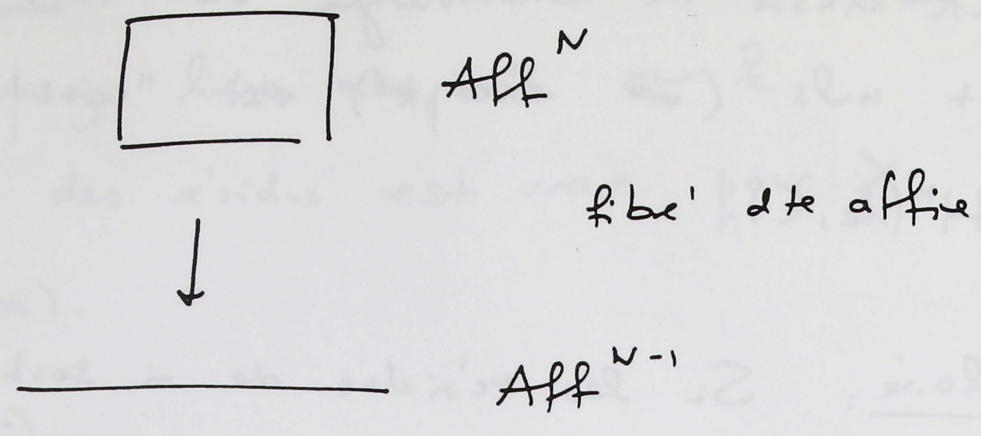 Aff^N
fibré dte affine
Aff^{N-1}